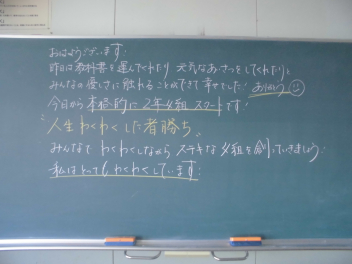 おはようございます!
昨日は教科書を運んでくれたり 元気なあいさつをしてくれたりと
みんなの優しさに触れることができて幸せでした! ありがとう
今日から本格的に2年4組スタートです!
"人生わくわくした者勝ち"
みんなで わくわくしながら ステキな 4組を創っていきましょう!
私はとってもわくわくしています!